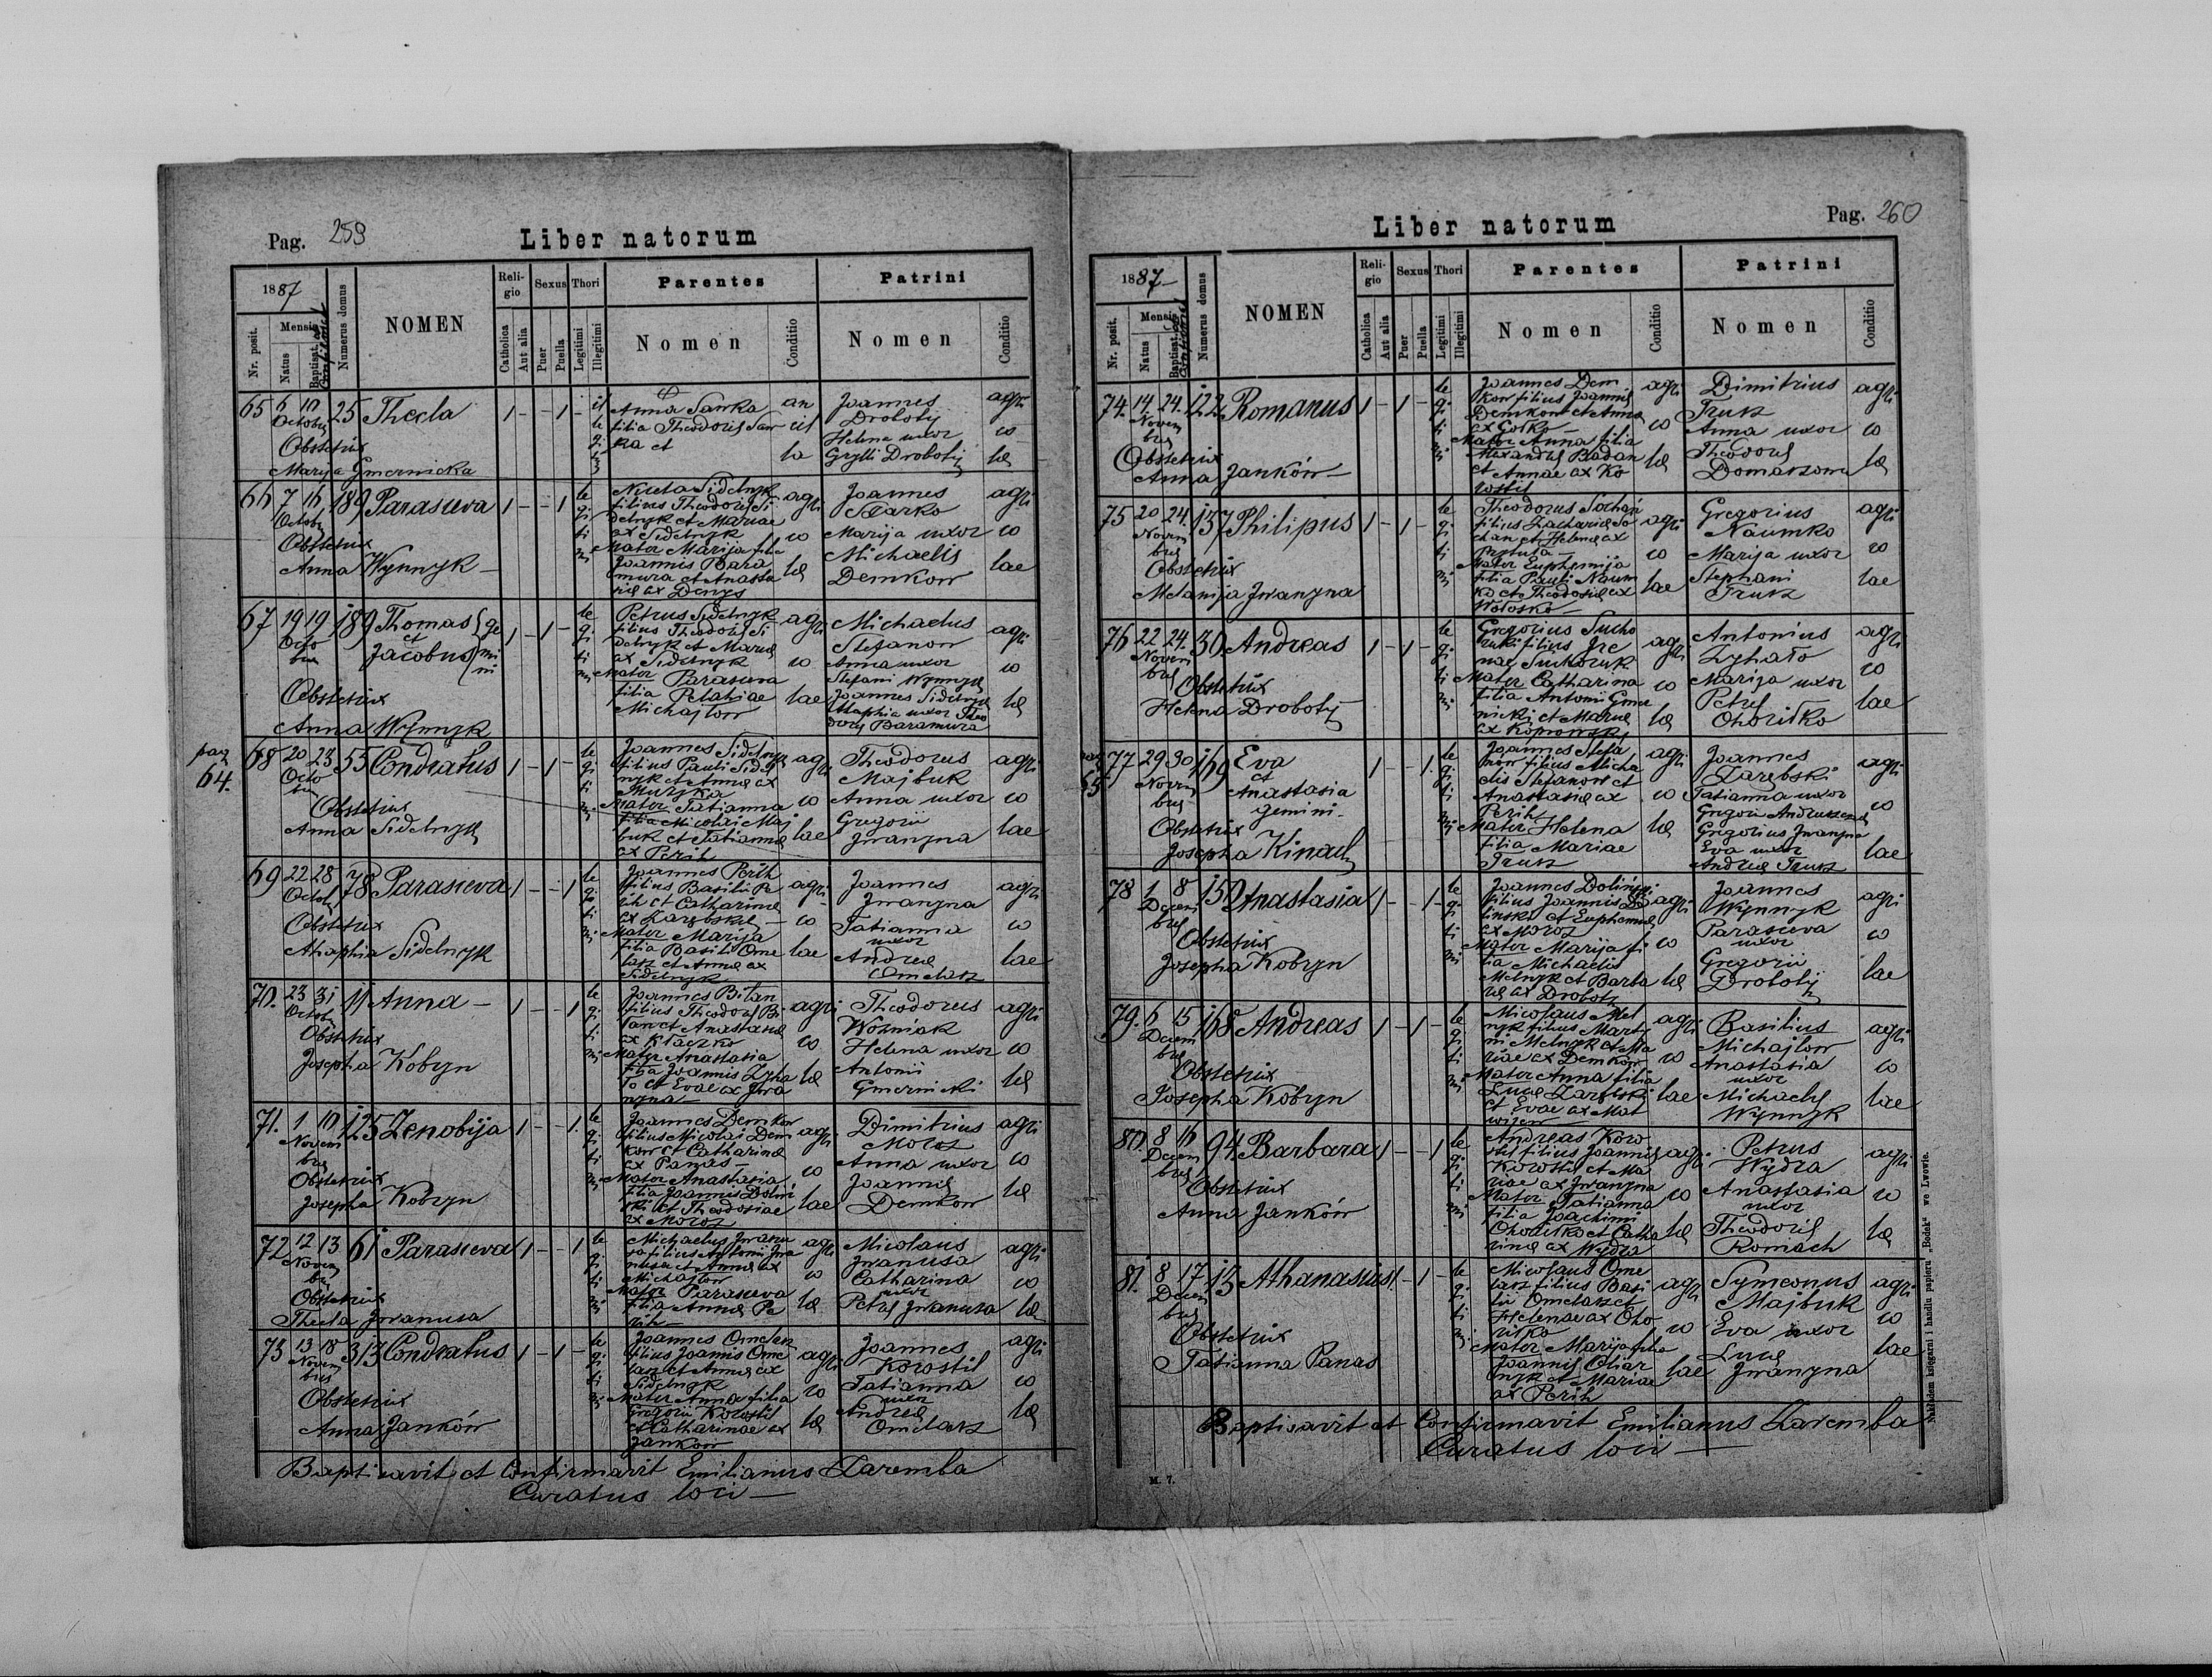 Pag. 259
Liber natorum
1887
Nr. posit.
Mensis
Natus
Baptisat. et Confirmat
Numerus domus
NOMEN
Religio
Catholica
Aut alia
Sexus
Puer
Puella
Thori
Legitimi
Illegitimi
Parentes
Nomen
Conditio
Patrini
Nomen
Conditio
65 6 10 25 Thecla 1 - - 1 -
Octobr
Obstetrix
Marya Gmernicka
Anna Sanka
filia Theodori San
ka et
Joannes
Droboty
Helena uxor
Grylli Droboty
66 7 16 189 Parasceva 1 - - 1
Octobr
Obstetrix
Anna Wynnyk -
Niceta Sidelnyk
filius Theodori Si
delnyk et Mariae
ex Sidelnyk
Mater Marija filia
Joannis Bara
mura et Anasta
siae ex Denys
agri
co
lae
Joannes
Skarko
Marija uxor
Michaelis
Demkow
agri
co
lae
67 19 19 189 Thomas ge
et mi
Jacobus ni
1 - 1 -
Octo
bris
Obstetrix
Anna Wynnyk
Petrus Sidelnyk
filius Theodori Si
delnyk et Mariae
ex Sidelnyk
Mater Parasceva
filia Pelahiae
Michajlow
agri
co
lae
Michaelus
Stefanow
Anna uxor
Stefani Wynnyk
Joannes Sidelnyk
Ahaphia uxor Theo
dory Baramura
agri
co
lae
pag
64.
68 20 23 55 Condratus 1 - 1 -
Octo
Obstetrix
Anna Sidelnyk
Joannes Sidelnyk
filius Pauli Sidel
nyk et Annae ex
Muryka
Mater Tatianna
filia Nicolai Maj
buk et Tatiannae
ex Perih
agri
co
lae
Theodorus
Majbuk
Anna uxor
Gregorii
Jwanyna
agri
co
lae
69 22 28 78 Parasceva 1 - - 1
Octobr
Obstetrix
Ahaphia Sidelnyk
Joannes Perih
filius Basilii Pe
rih et Catharinae
ex Zarębskie -
Mater Marija
filia Basilii Ome
lasz et Annae ex
Sidelnyk
agri
co
lae
Joannes
Jwanyna
Tatianna
uxor
Andreae
Omelasz
agri
co
lae
70. 23 31 11 Anna - 1 - - 1
Octobr
Obstetrix
Josepha Kobryn
Joannes Bilan
filius Theodori Bi
lan et Anastasiae
ex Klaczko
Mater Anastasia
filia Joannis Zyha
to et Evae ex Jwa
nyna
agri
co
lae
Theodorus
Woźniak
Helena uxor
Antonii
Gmernicki
agri
co
lae
71. 1 10 125 Zenobija 1 - - 1.
Novem
bris
Obstetrix
Josepha Kobryn
Joannes Demkow
filius Nicolai Dem
kow et Catharinae
ex Panas -
Mater Anastasia
filia Joannis Dolin
ski et Theodosiae
ex Moroz
agri
co
lae
Dimitrius
Moroz
Anna uxor
Joannis
Demkow
agri
co
lae
72 12 13 61 Parasceva 1 - - 1
Novem
bris
Obstetrix
Thecla Jwanusa
Michaelus Jwanu
sa filius Antonii Jwa
nusa et Annae ex
Michajlow
Mater Parasceva
filia Annae Pe
rih -
agri
co
lae
Nicolaus
Jwanusa
Catharina
uxor
Petri Jwanusa
agri
co
lae
73 13 18 313 Condratus 1 - 1 -
Novem
bris
Obstetrix
Anna Jankón
Joannes Omelan
filius Joannis Ome
lan et Annae ex
Sidelnyk
Mater Anna filia
Gregorii Korostil
et Catharinae ex
Jankow
agri
co
lae
Joannes
Korostil
Tatianna
uxor
Andreae
Omelasz
agri
co
lae
Baptisavit et Confirmavit Emilianus Zaremba
Curatus loci -
Pag. 260
Liber natorum
1887
Nr. posit.
Mensis
Natus
Baptisat. et Confirmat
Numerus domus
NOMEN
Religio
Catholica
Aut alia
Sexus
Puer
Puella
Thori
Legitimi
Illegitimi
Parentes
Nomen
Conditio
Patrini
Nomen
Conditio
74. 14. 24. 122 Romanus 1 - 1 -
Novem
bris
Obstetrix
Anna Jankón -
Joannes Dem
kow filius Joannis
Demkow et Anna
ex Gorko -
Mater Anna filia
Alexandri Badan
et Annae ex Ko
rostil
agri
co
lae
Dimitrius
Trusz
Anna uxor
Theodori
Domarzowa
agri
co
lae
75 20 24. 157 Philipus 1 - 1 -
Novem
bris
Obstetrix
Melanija Jwanyna
Theodorus Sochan
filius Zachariae So
chan et Helenae ex
Mater Euphemija
filia Pauli Naum
ko et Theodosiae ex
Wołosko -
agri
co
lae
Gregorius
Naumko
Marija uxor
Stephani
Trusz
agri
co
lae
76 22 24. 30. Andreas 1 - 1 -
Novem
bris
Obstetrix
Helena Droboty
Gregorius Sucho
ruki filius Jre
nae Suchoruk
Mater Catharina
filia Antonii Gmer
nicki et Mariae
ex Koprowski
agri
co
lae
Antonius
Zyhało
Marija uxor
Petri
Ohoritko
agri
co
lae
65
77 29 30 169 Eva
et
Anastasia
gemini -
1 - - 1.
Novem
bris
Obstetrix
Josepha Kinach
Joannes Stefa
now filius Micha
elis Stefanow et
Anastasiae ex
Perih
Mater Helena
filia Mariae
Trusz
agri
co
lae
Joannes
Zarębski
Tatianna uxor
Gregorii
Gregorius Jwanyna
Eva uxor
Andreae Trusz
agri
co
lae
78 1 8 150 Anastasia 1 - - 1 -
Decem
bris
Obstetrix
Josepha Kobryn
Joannes Doliński
filius Joannis Do
linski et Euphemiae
ex Moroz
Mater Marija fi
lia Michaelis
Melnyk et Barba
rae ex Drobotz
agri
co
lae
Joannes
Wynnyk
Parasceva
uxor
Gregorii
Droboty
agri
co
lae
79. 6 15 168 Andreas 1 - 1 -
Decem
bris
Obstetrix
Josepha Kobryn
Nicolaus Mel
nyk filius Marti
ni Melnyk et Ma
riae ex Demkow
Mater Anna filia
Lucae Zarębski
et Evae ex Mat
wijew
agri
co
lae
Basilius
Michajlow
Anastasia
uxor
Michaelis
Wynnyk
agri
co
lae
80. 8 16 94. Barbara 1 - - 1
Decem
bris
Obstetrix
Anna Jankón
Andreas Koro
stil filius Joannis
Korostil et Ma
riae ex Jwanyna
Mater Tatianna
filia Joachimi
Ohoritko et Catha
rinae ex Wydra
agri
co
lae
Petrus
Wydra
Anastasia
uxor
Theodori
Romach
agri
co
lae
81. 8 17 13 Athanasius 1 - 1 -
Decem
bris
Obstetrix
Tatianna Panas
Nicolaus Ome
lasz filius Basi
lii Omelasz et
Helenae ex Oho
ritko
Mater Marija filia
Joannis Oliar
nyk et Mariae
ex Perih
agri
co
lae
Symeonus
Majbuk
Eva uxor
Lucae
Jwanyna
agri
co
lae
Baptisavit et Confirmavit Emilianus Zaremba
Curatus loci -
M. 7.
Nakładem księgarni i handlu papieru „Bodek" we Lwowie.